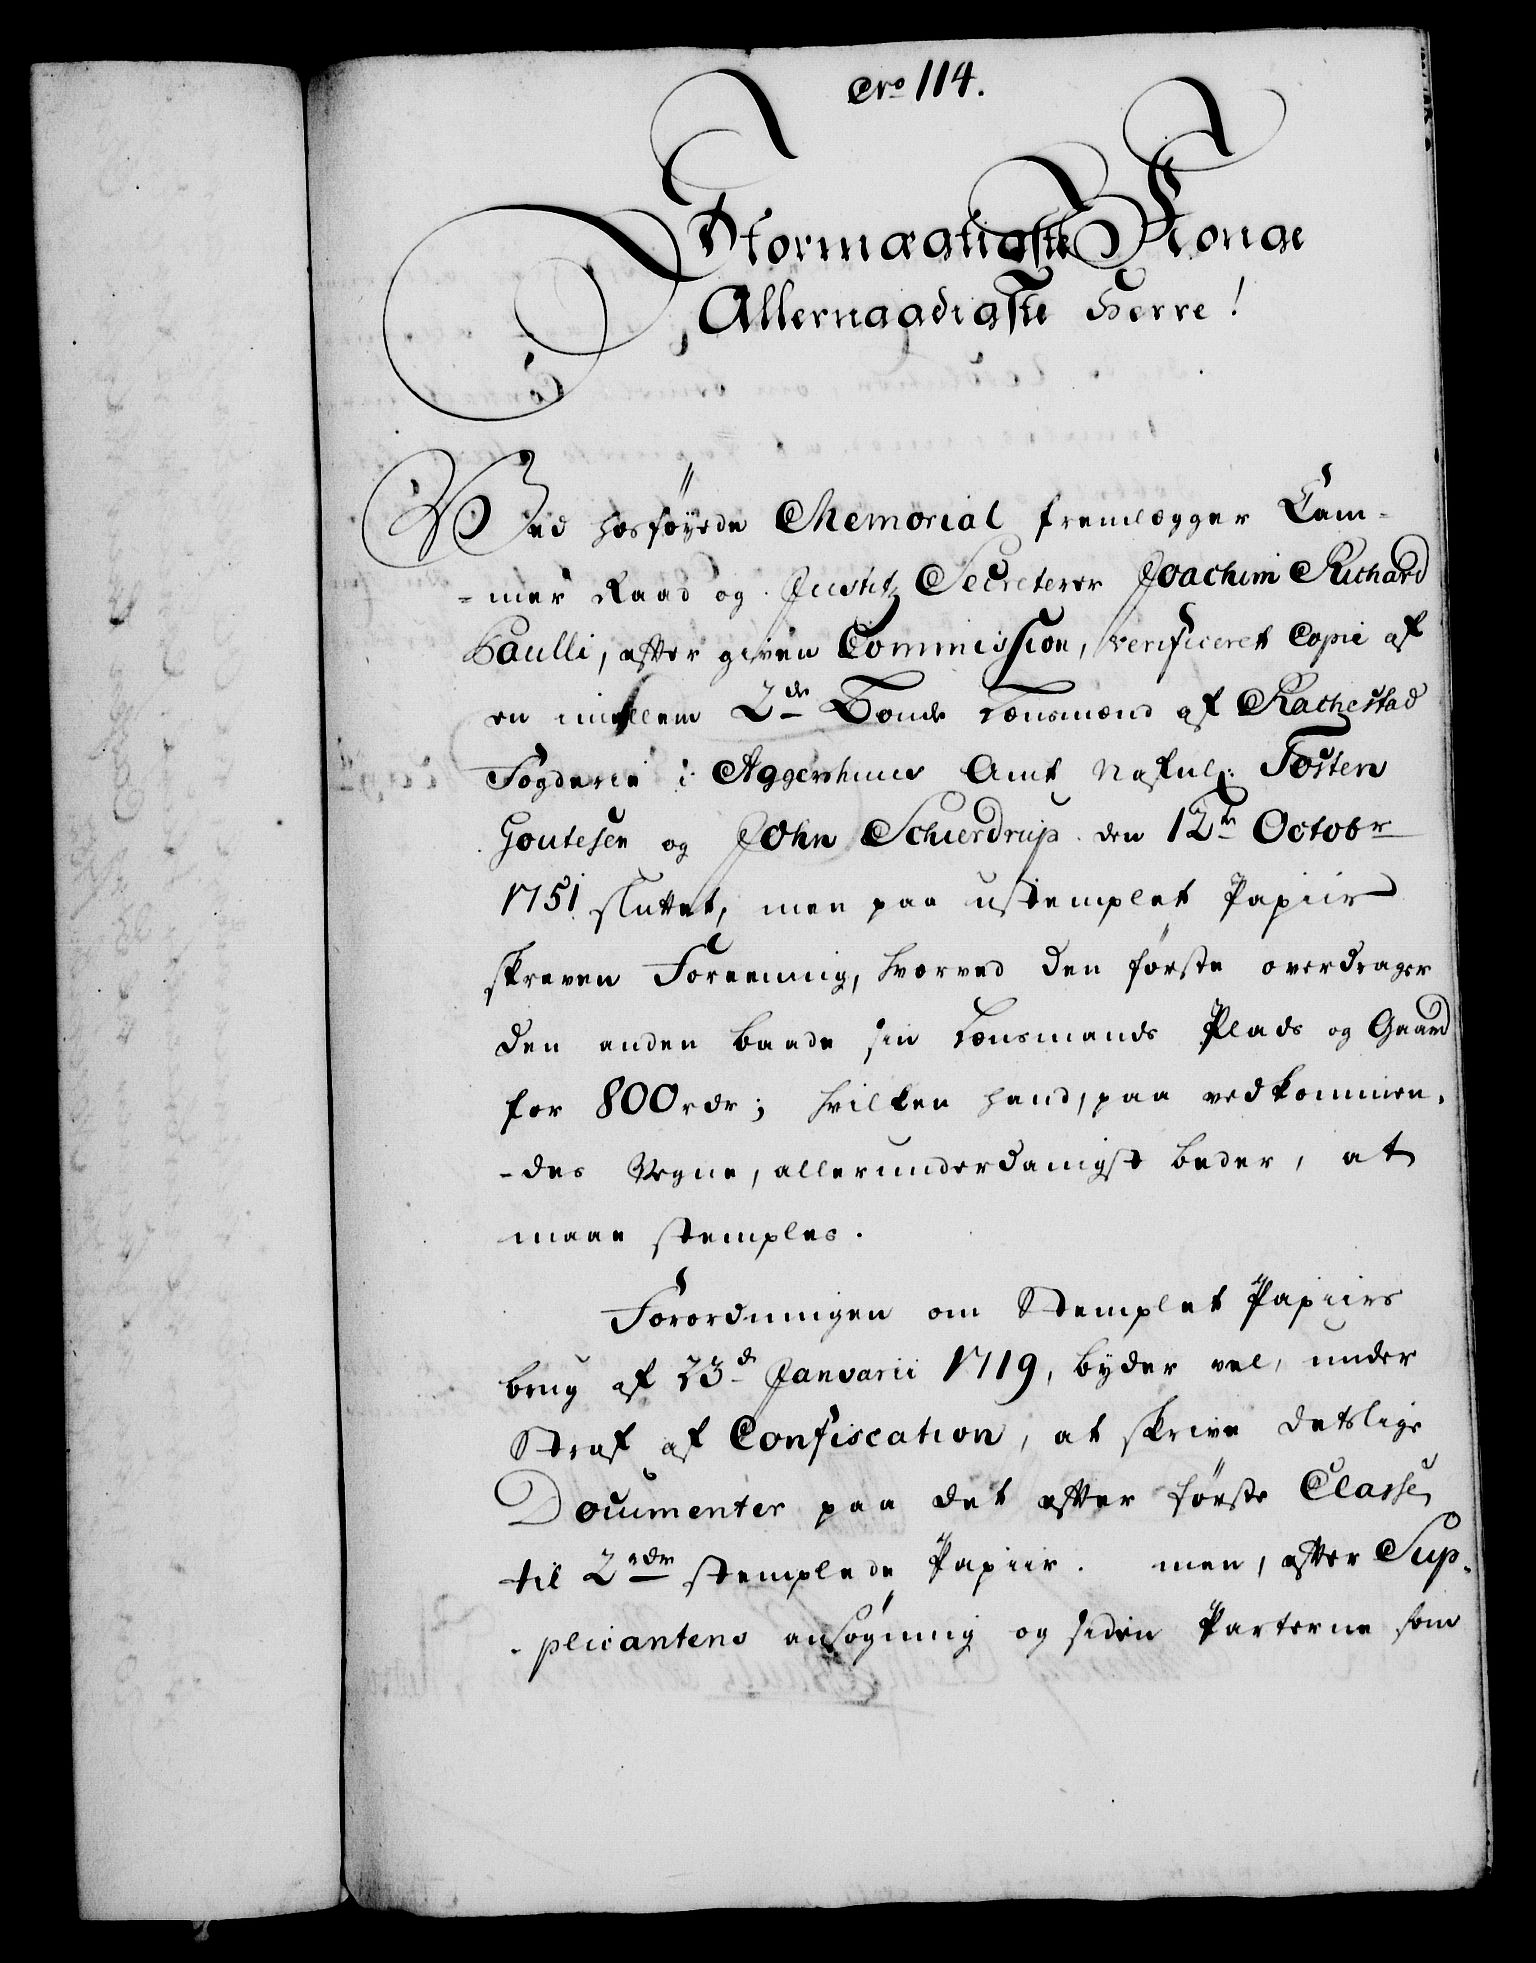 Nro 114.
Stormægtigste Konge
Allernaadigste Herre!
Ved hosføyede Memorial fremlægger Cam-
-mer Raad og Justitz Secreterer Joachim Richard
Paulli, efter given Commission, verificeret Copie af
en imellem 2de Bonde Lensmænd af Rachestad
Fogderie i Aggershuus Amt Nafnl: Tosten
Goutesen og John Schierdrup den 12te Octobr
1751 sluttet, men paa ustemplet Papiir
skreven Foreening, hvorved den første overdrager
den anden baade sin Lensmands Plads og Gaard
for 800 rdr; hvilken hand, paa vedkommen-
-des Vegne, allerunderdanigst beder, at
maae stemples.
Forordningen om Stemplet Papiirs
brug af 23d Janvarii 1719, byder vel, under
Straf af Confiscation, at skrive detslige
Documenter paa det efter første Classe
til 2 rdr stemplede Papiir. men, efter Sup-
-plicantens ansøgning og siden Parterne som